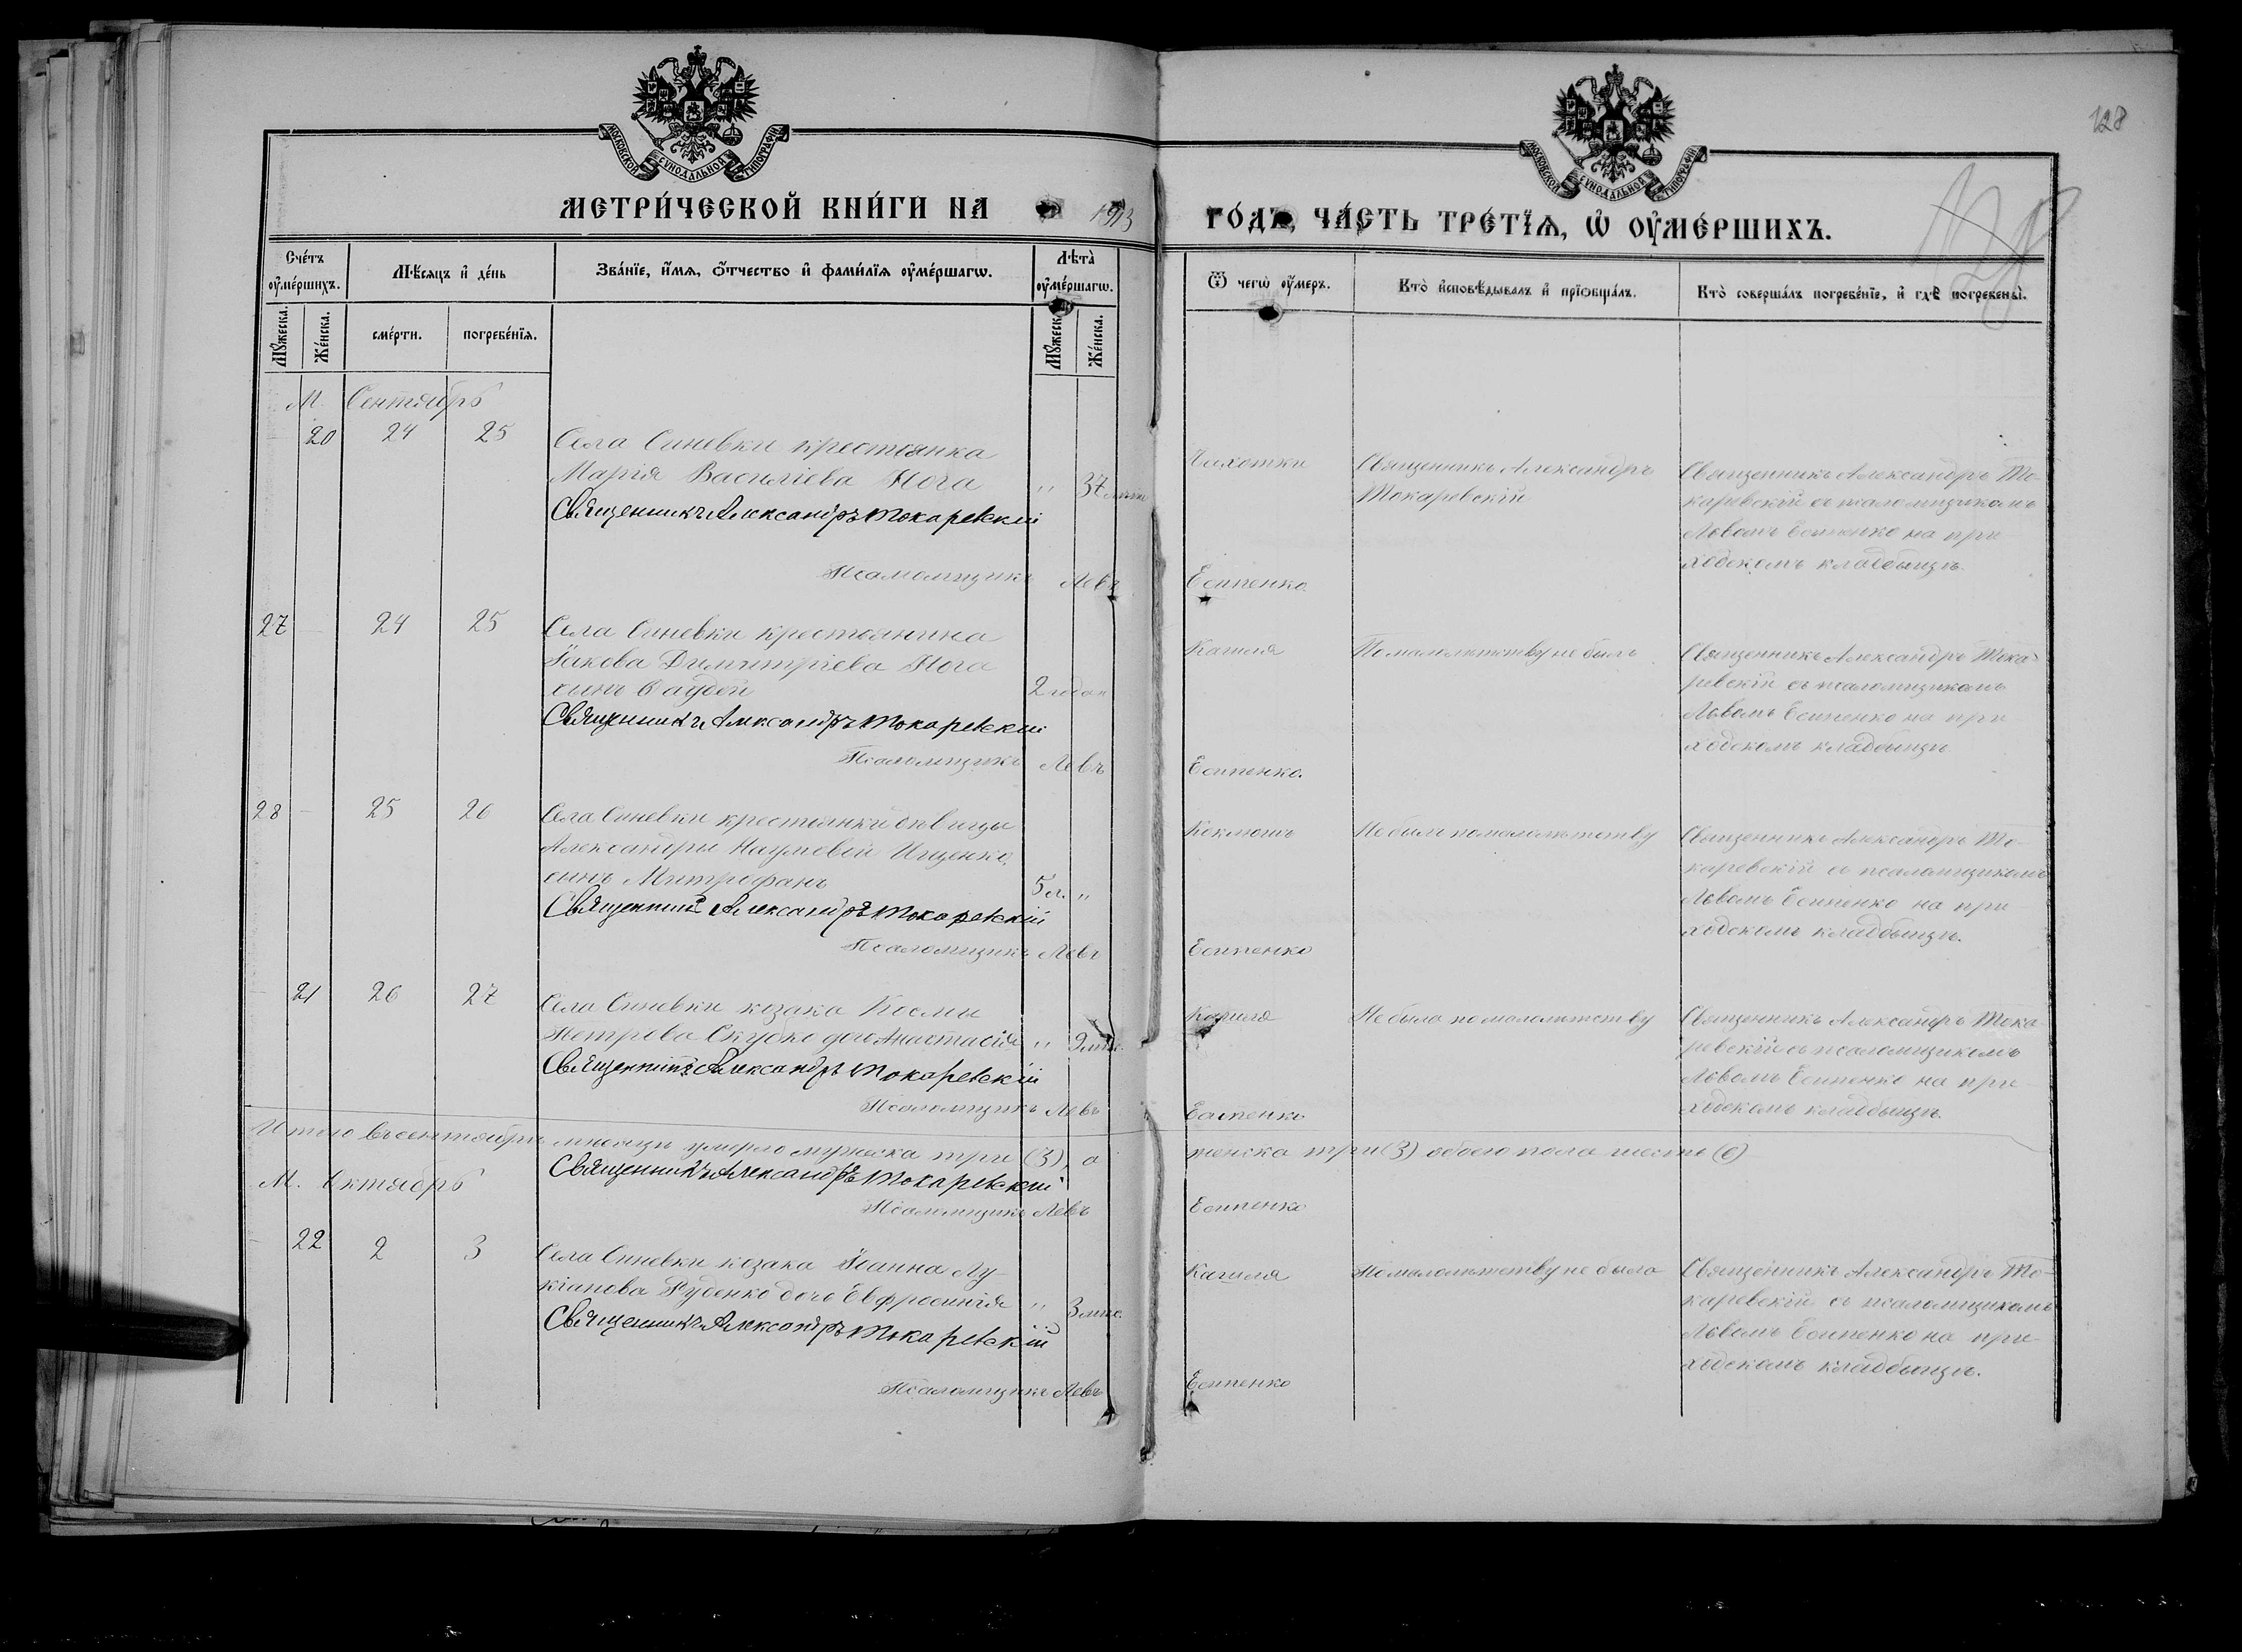 128
128
МОСКОВСКОЙ СѴНОДАЛЬНОЙ ТИПОГРАФІИ
МОСКОВСКОЙ СѴНОДАЛЬНОЙ ТИПОГРАФІИ
МЕТРИ́ЧЕСКОЙ КНИ́ГИ НА 1913 ГО́ДЪ, ЧА́СТЬ ТРЕ́ТЇѦ, Ѡ҆ ОУ҆МЕ́РШИХЪ.
Сче́тъ оу҆ме́ршихъ.
Мѣ́сѧцъ и҆ де́нь
Зва́нїе, и҆́мѧ, ѻ҆́тчество и҆ фами́лїѧ оу҆ме́ршагѡ.
Лѣ́та оу҆ме́ршагѡ.
Ѿ чегѡ̀ оу҆́меръ.
Кто̀ и҆сповѣ́дывалъ и҆ прїѻбща́лъ.
Кто̀ соверша́лъ погребе́нїе, и҆ гдѣ̀ погребены̀.
Мꙋ́жеска.
Же́нска.
сме́рти.
погребе́нїѧ.
Мꙋ́жеска.
Же́нска.
М. Сентябрь
20 24 25
Села Синевки крестьянка
Марія Василіева Нога " 37 лѣтъ
Священникъ Александръ Токаревскій
Псаломщикъ Левъ Есипенко.
Чахотки
Священникъ Александръ
Токаревскій
Священникъ Александръ То-
каревскій съ псаломщикомъ
Львомъ Есипенко на при
ходскомъ кладбищѣ.
27 24 25
Села Синевки крестьянина
Іакова Димитріева Нога
сынъ 2 года
Священникъ Александръ Токаревскій
Псаломщикъ Левъ Есипенко.
Кашля
По малолѣтству не былъ
Священникъ Александръ Тока-
ревскій съ псаломщикомъ
Львомъ Есипенко на при
ходскомъ кладбищѣ
28 25 26
Села Синевки крестьянки дѣвицы
Александры Наумовой Ищенко
сынъ Митрофанъ 5 л. "
Священникъ Александръ Токаревскій
Псаломщикъ Левъ Есипенко
Коклюшъ
Не былъ по малолѣтству
Священникъ Александръ То-
каревскій съ псаломщикомъ
Львомъ Есипенко на при-
ходскомъ кладбищѣ.
21 26 27
Села Синевки козака Космы
Петрова Скубко дочь Анастасія "
Священникъ Александръ Токаревскій
Псаломщикъ Левъ Есипенко
Кашля
Не была по малолѣтству
Священникъ Александръ Тока
ревскій съ псаломщикомъ
Львомъ Есипенко на при-
ходскомъ кладбищѣ.
Итого въ сентябрѣ мѣсяцѣ умерло мужеска три (3), а женска три (3) обоего пола шесть (6)
Священникъ Александръ Токаревскій
Псаломщикъ Левъ Есипенко
М. Октябрь
22 2 3
Села Синевки козака Іоанна Лу-
кіанова Руденко дочь Евфросинія "
Священникъ Александръ Токаревскій
Псаломщикъ Левъ Есипенко
Кашля
По малолѣтству не была
Священникъ Александръ То-
каревскій съ псаломщикомъ
Львомъ Есипенко на при-
ходскомъ кладбищѣ.